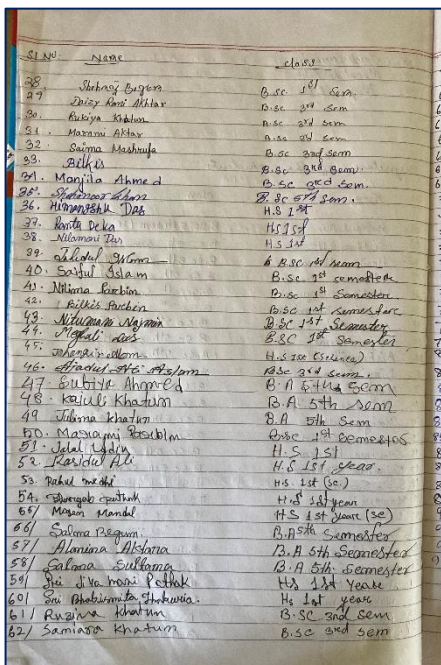 SI. NO Name class
28. Begum B.sc 1st Sem.
29 Daizy Rani Akhtar B.sc 3rd Sem
30. Rukiya Khatun B.sc 3rd Sem
31. Marami Aktar B.sc 3rd Sem
32. Saima Mashrufa B.sc 3rd sem
33. Bilkis B.sc 3rd Sem.
34. Monjila Ahmed B.sc 3rd Sem.
35. B.sc 5th Sem.
36. Himangshu Das H.S 1st
37. Deka HS 1st
38. Nilamoni Das H.S 1st
39. Islam B.sc 1st sem
40. Saiful Islam B.sc 1st semester
41. Nilima Parbin B.sc 1st Semester
42. Bilkis Parbin B.sc 1st semester
43. Nitumani Najmin B.Sc 1st Semester
44. Das B.SC 1st Semester
45. Jahangir Alom H.S 1st (Science)
46. Ali Aslam B.sc 3rd sem.
47. Subiya Ahmed B.A 5th Sem
48. Kajuli Khatun B.A. 5th sem
49 Julima Khatun B.A 5th Sem
50. B.sc 1st Semester
51. Jalal Uddin H.S. 1st
52. Rasidul Ali H.S 1st year.
53. Rahul medhi H.S. 1st (Sc.)
54. pathak H.S 1st year
55/ Mandal H.S 1st year (sc)
56/ Salma Begum B.A 5th Semester
57/ Aktara B.A 5th Semester
58/ Salma Sultana B.A 5th Semester
59/ Sri Pathak Hs 1st Year
60/ Sri Bhabismita Hs 1st year
61/ Ruzina Khatun B.SC 3rd Sem
62/ Samiara Khatun B.SC 3rd sem